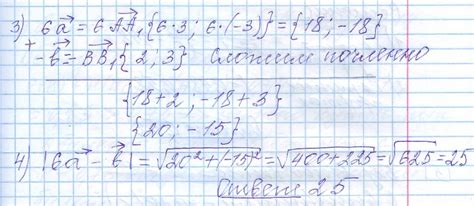 3) 6a⃗ = 6·AA⃗₁{6·3; 6·(-3)} = {18; -18}
+ -b⃗ = -BB⃗₁{2; 3} Сложим почленно
{18+2; -18+3}
{20; -15}
4) |6a⃗ - b⃗| = √20²+(-15)² = √400+225 = √625 = 25
Ответ 25